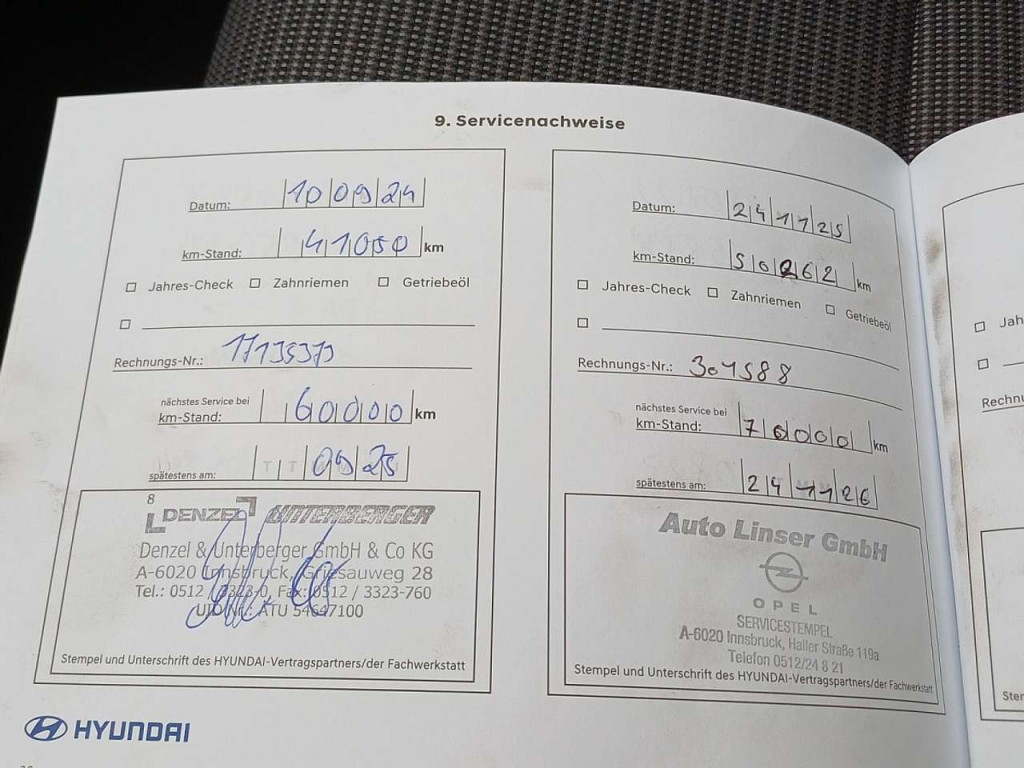 9. Servicenachweise
Datum: 10 09 24
km-Stand: 41050 km
Jahres-Check Zahnriemen Getriebeöl
Rechnungs-Nr.:
nächstes Service bei
km-Stand: 60000 km
spätestens am: T T 09 25
8
DENZEL UNTERBERGER
Denzel & Unterberger GmbH & Co KG
A-6020 Innsbruck, Griesauweg 28
Tel.: 0512 / 3323-0, Fax: 0512 / 3323-760
UID Nr.: ATU 54647100
Stempel und Unterschrift des HYUNDAI-Vertragspartners/der Fachwerkstatt
HYUNDAI
Datum: 24 11 25
km-Stand: 50262 km
Jahres-Check Zahnriemen Getriebeöl
Rechnungs-Nr.: 301588
nächstes Service bei
km-Stand: 70000 km
spätestens am: 24 11 26
Auto Linser GmbH
OPEL
SERVICESTEMPEL
A-6020 Innsbruck, Haller Straße 119a
Telefon 0512/24 8 21
Stempel und Unterschrift des HYUNDAI-Vertragspartners/der Fachwerkstatt
Jah
Rechnu
Ster